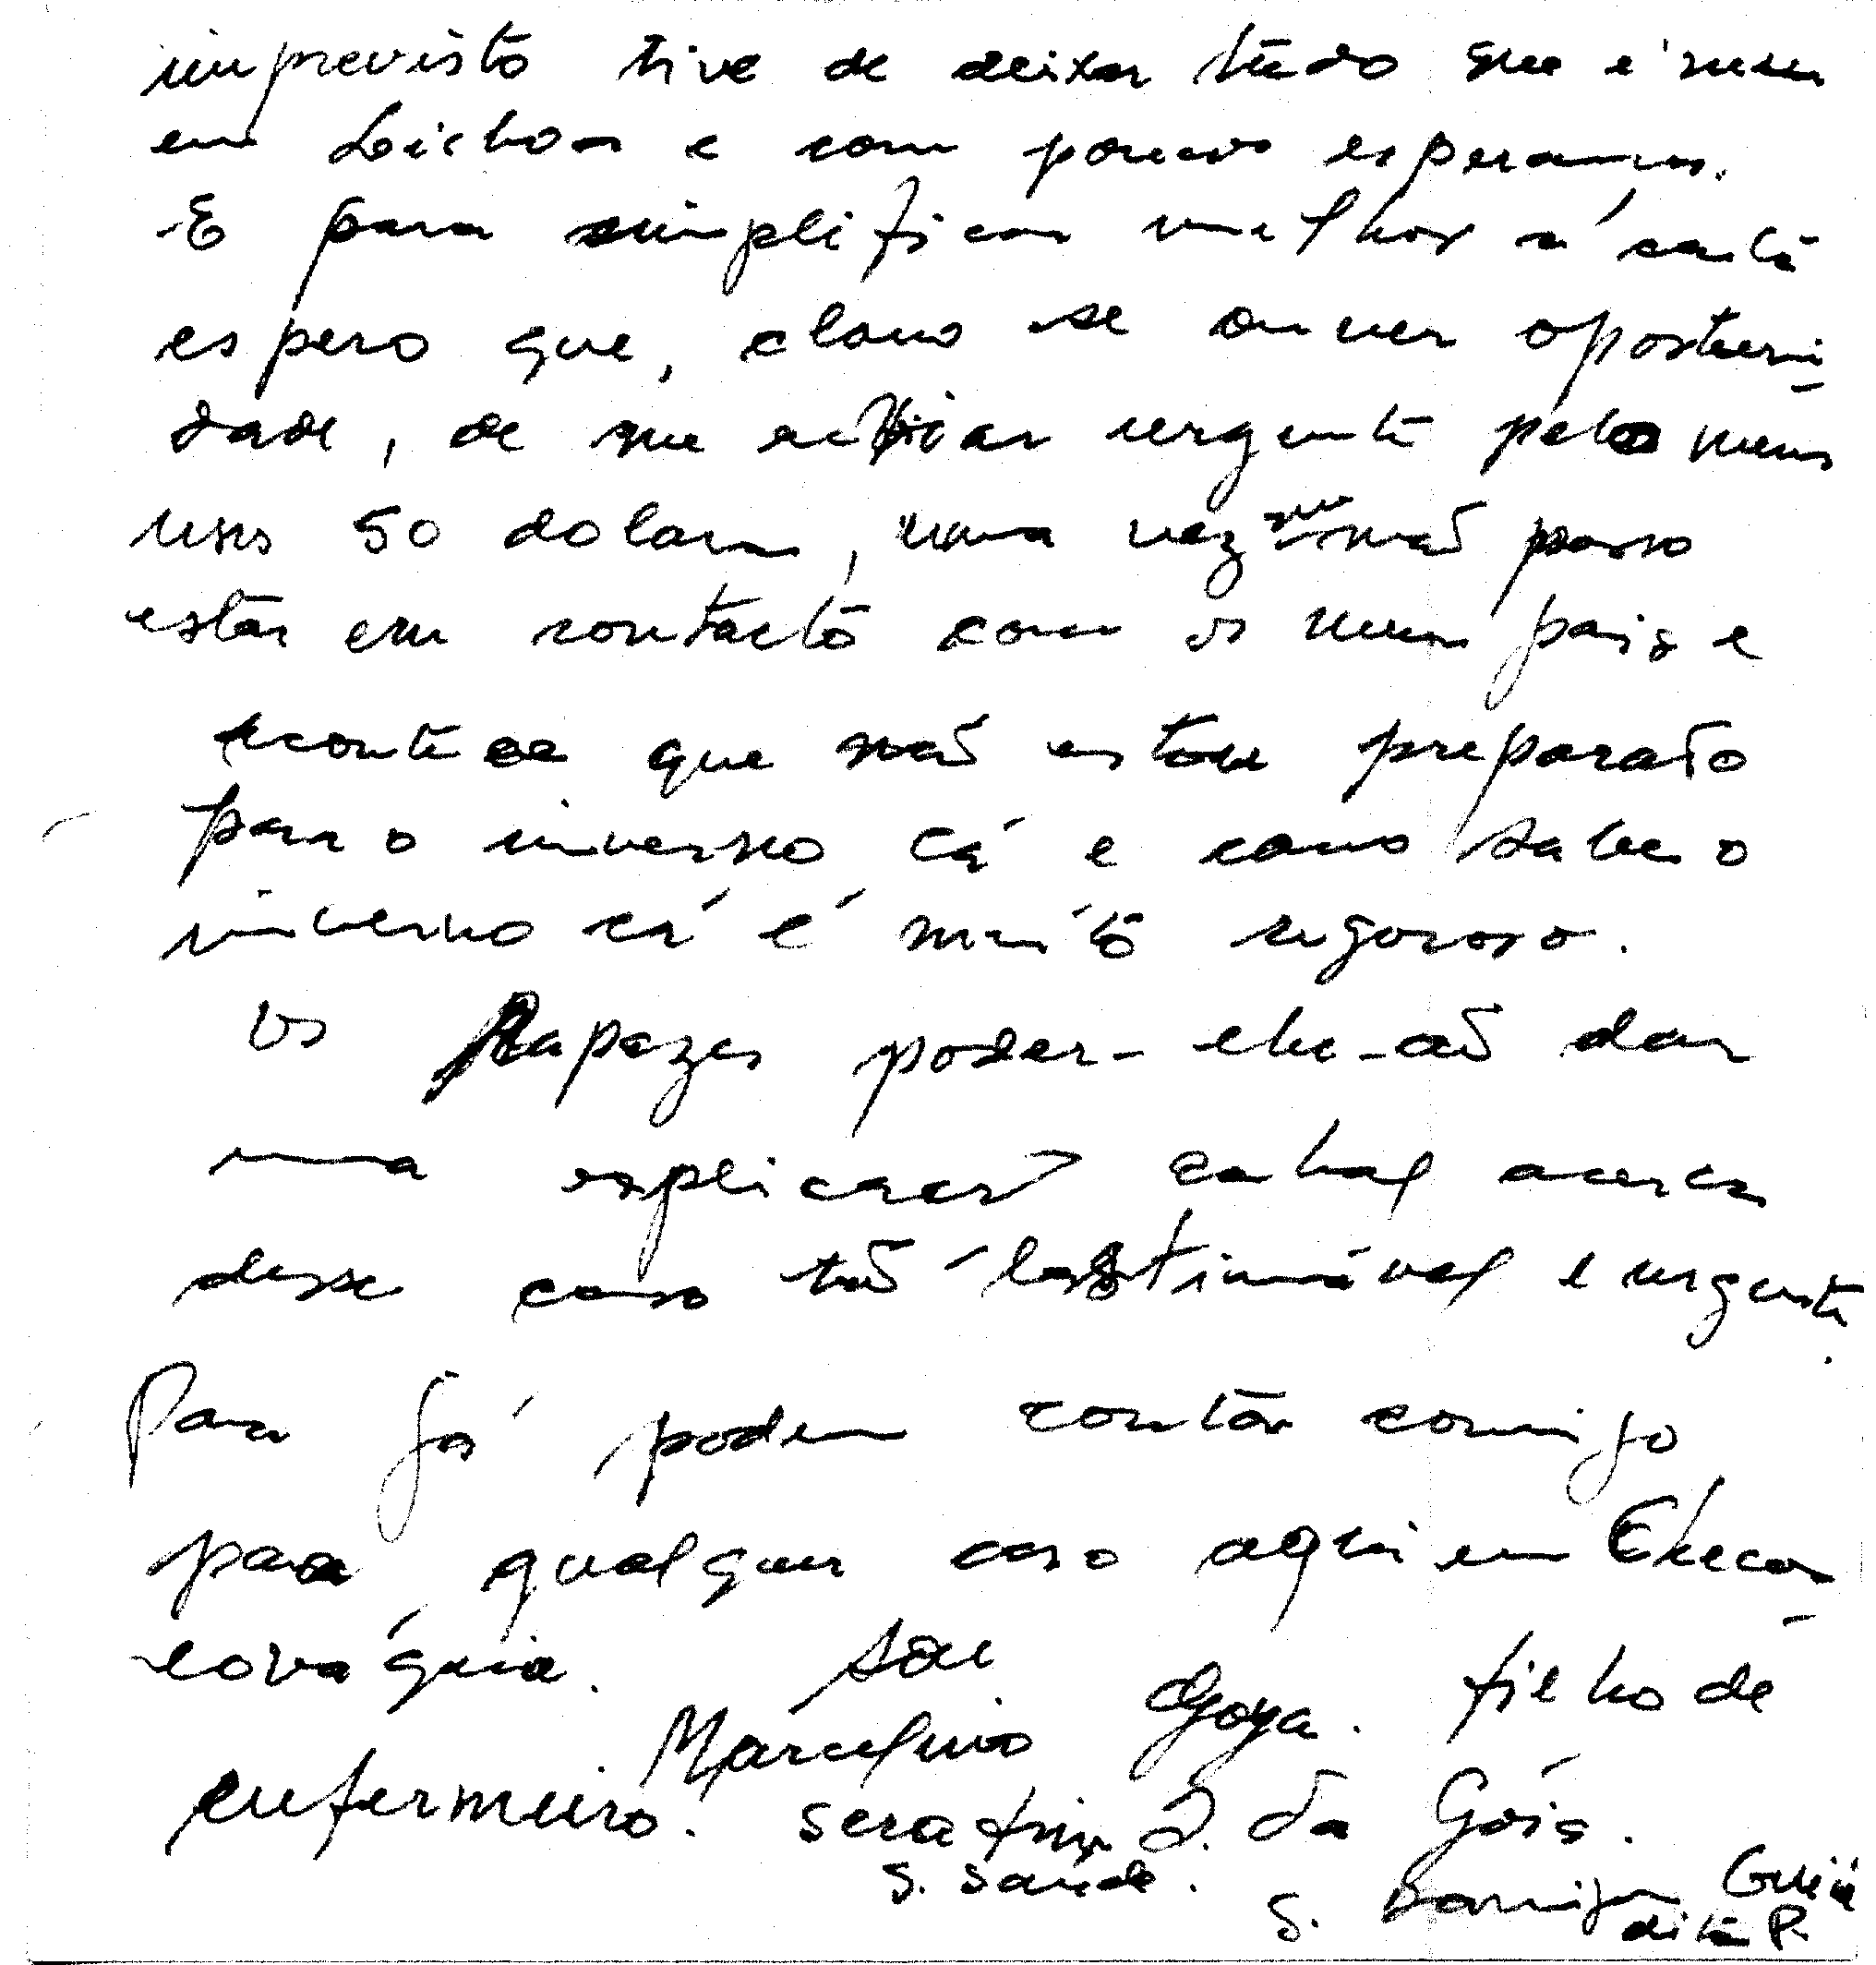 imprevisto tive de deixar tudo que é meu
em Lisboa e com poucas esperanças.
E para simplificar melhor a carta
espero que, claro se ouver oportuni-
dade, de me enviar urgente pelo menos
uns 50 dolares, uma vez que não posso
estar em contacto com os meus pais e
acontece que não estou preparado
para o inverno cá e como sabe o
inverno cá é muito rigoroso.
Os Rapazes poder-lhe-ão dar
uma explicação cabal acerca
desse caso tão lastimável e urgente.
Para já podem contar comigo
para qualquer caso aqui em Checos-
lováquia. Sou filho de
Marcelino Goya.
enfermeiro. Serafim J. da Góis.
S. Saúde.
S. Domingos Guiné
dita P.